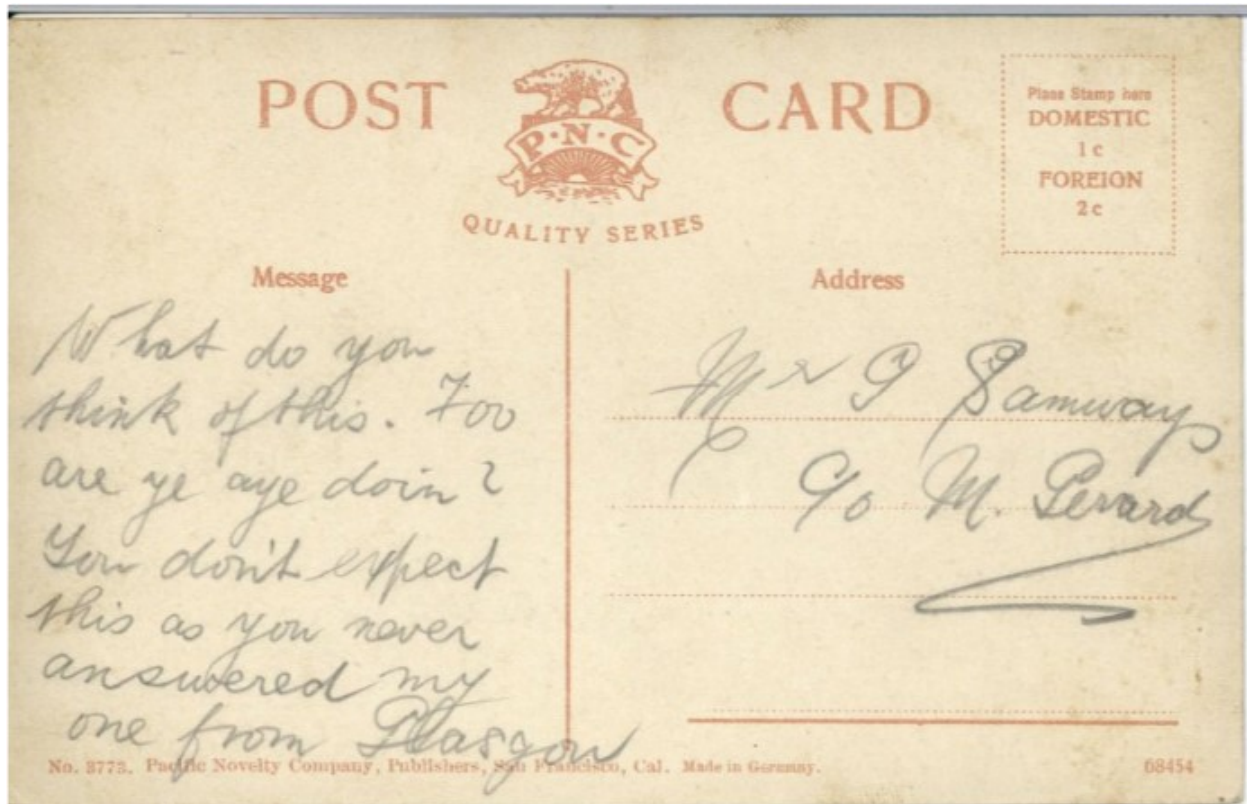 POST CARD
P·N·C
QUALITY SERIES
Place Stamp here
DOMESTIC
1c
FOREIGN
2c
Message
What do you
think of this. Foo
are ye aye doin?
You don't expect
this as you never
answered my
one from Glasgow
Address
Mr G Samways
c/o M. Gerard
No. 3773. Pacific Novelty Company, Publishers, San Francisco, Cal. Made in Germany.
68454